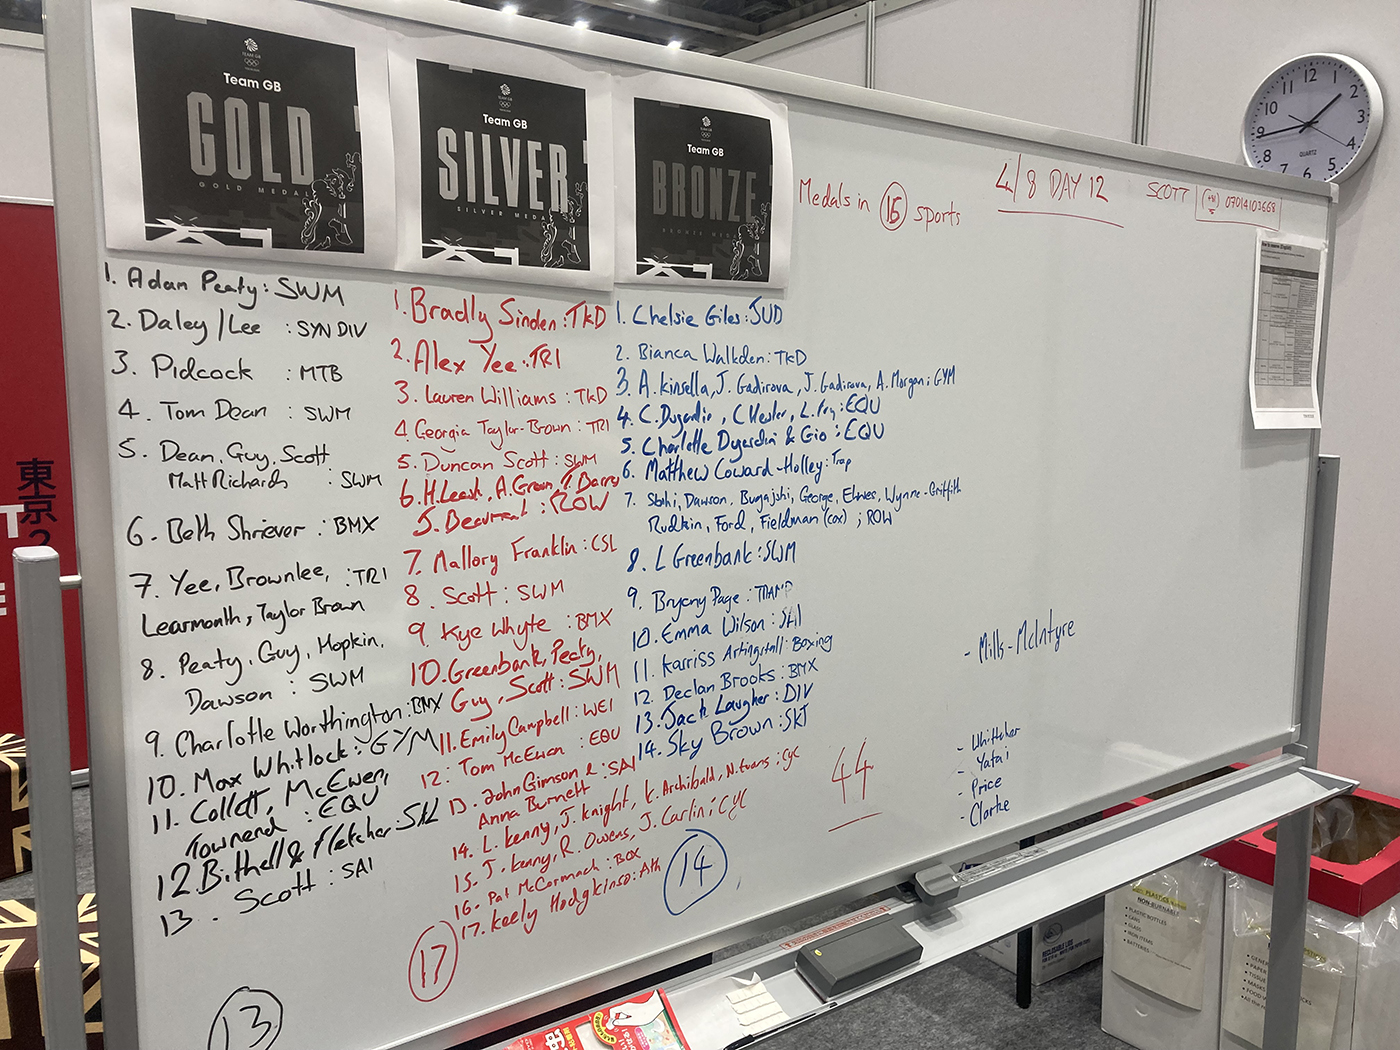 TEAM GB
Team GB
GOLD
GOLD MEDAL
TEAM GB
Team GB
SILVER
SILVER MEDAL
TEAM GB
Team GB
BRONZE
BRONZE MEDAL
Medals in 16 sports
4/8 DAY 12
SCOTT (+81) 07014103668
12
1
2
3
4
5
6
7
8
9
10
11
QUARTZ
1. Adam Peaty: SWM
2. Daley/Lee : SYN DIV
3. Pidcock : MTB
4. Tom Dean : SWM
5. Dean, Guy, Scott
Matt Richards : SWM
6. Beth Shriever : BMX
7. Yee, Brownlee, : TRI
Learmonth, Taylor Brown
8. Peaty, Guy, Hopkin,
Dawson : SWM
9. Charlotte Worthington: BMX
10. Max Whitlock: GYM
11. Collett, McEwen,
Townend : EQU
12. Bithell & Fletcher: SAL
13. Scott : SAI
13
1. Bradly Sinden: TKD
2. Alex Yee: TRI
3. Lauren Williams: TKD
4. Georgia Taylor-Brown: TRI
5. Duncan Scott: SWM
6. H. Leask, A. Groom, T. Barry
J. Beaumont: ROW
7. Mallory Franklin: CSL
8. Scott: SWM
9. Kye Whyte: BMX
10. Greenbank, Peaty,
Guy, Scott: SWM
11. Emily Campbell: WEI
12: Tom McEwen : EQU
13. John Gimson & : SAI
Anna Burnett
14. L. Kenny, J. Knight, K. Archibald, N. Evans: CYC
15. J. Kenny, R. Owens, J. Carlin; CYC
16. Pat McCormack: BOX
17. Keely Hodgkinso: Ath
17
1. Chelsie Giles: JUD
2. Bianca Walkden: TKD
3. A. Kinsella, J. Gadirova, J. Gadirova, A. Morgan; GYM
4. C. Dujardin, C Hester, L. Fry: EQU
5. Charlotte Dujardin & Gio: EQU
6. Matthew Coward-Holley: Trap
7. Sbihi, Dawson, Bugajski, George, Elwes, Wynne-Griffith
Rudkin, Ford, Fieldman (cox) ; ROW
8. L Greenbank: SWM
9. Bryony Page: TRAMP
10. Emma Wilson: SAI
11. Karriss Artingstall: Boxing
12. Declan Brooks: BMX
13. Jack Laugher: DIV
14. Sky Brown: SKT
14
44
- Mills-McIntyre
- Whittaker
- Yafai
- Price
- Clarke
東京2
PLASTICS
NON-BURNABLE
• PLASTIC BOTTLES
• CANS
• GLASS
• NON ITEMS
• BATTERIES